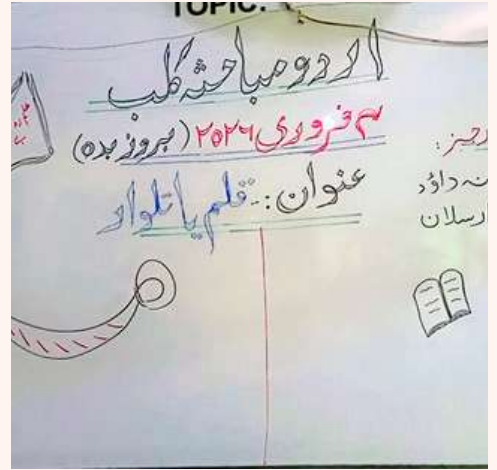 TOPIC:
اردو مباحثہ کلب
۴ فروری ۲۰۲۶ (بروز بدھ)
عنوان:- قلم یا تلوار
داؤد
ارسلان